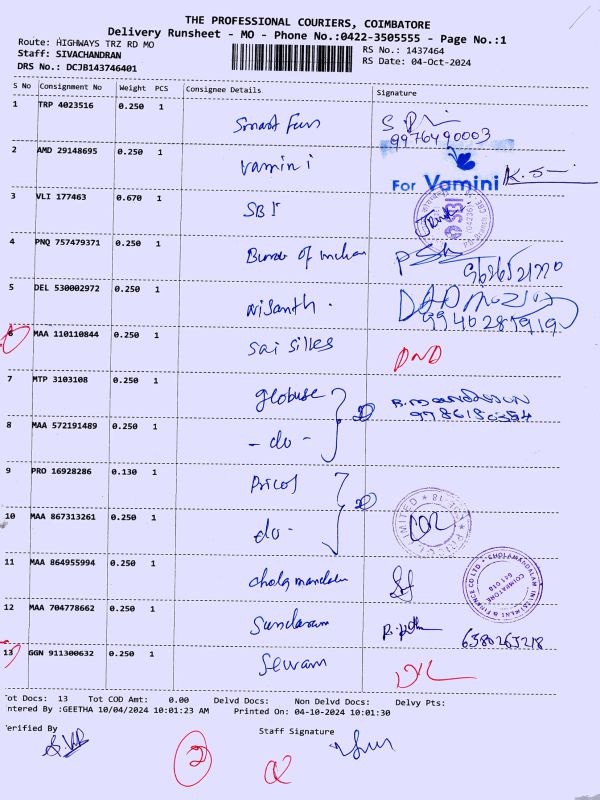 THE PROFESSIONAL COURIERS, COIMBATORE
Delivery Runsheet - MO - Phone No.:0422-3505555 - Page No.:1
Route: HIGHWAYS TRZ RD MO
Staff: SIVACHANDRAN
DRS No.: DCJB143746401
RS No.: 1437464
RS Date: 04-Oct-2024
S No Consignment No Weight PCS Consignee Details Signature
1 TRP 4023516 0.250 1 Smart Fun
9976490003
2 AMD 29148695 0.250 1 Vamini
For Vamini K.S
3 VLI 177463 0.670 1 SBI
SBI
4 PNQ 757479371 0.250 1 of
5 DEL 530002972 0.250 1 Nisanth.
6 MAA 110110844 0.250 1 Sai Silks DND
7 MTP 3103108 0.250 1 globuse
9786180354
8 MAA 572191489 0.250 1 - do -
9 PRO 16928286 0.130 1 Pricol
10 MAA 867313261 0.250 1 do -
LIMITED
11 MAA 864955994 0.250 1 chola mandalam
CHOLAMANDALAM INVESTMENT & FINANCE CO LTD
COIMBATORE
641 018
12 MAA 704778662 0.250 1 Sundaram
6380265218
13 GGN 911300632 0.250 1 Sewam DL
ot Docs: 13 Tot COD Amt: 0.00 Delvd Docs: Non Delvd Docs: Delvy Pts:
ntered By :GEETHA 10/04/2024 10:01:23 AM Printed On: 04-10-2024 10:01:30
erified By Staff Signature
2